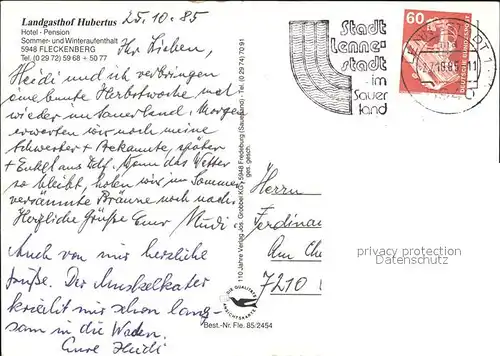 Landgasthof Hubertus
Hotel - Pension
Sommer- und Winteraufenthalt
5948 FLECKENBERG
Tel. (0 29 72) 59 68 + 50 77
25.10.85
Ihr Lieben,
Heidi und ich verbringen
eine bunte Herbstwoche mal
wieder im Sauerland. Morgen
erwarten wir noch meine
Schwester + Bekannte, später
+ Enkel aus Ddf. Wenn das Wetter
so bleibt, holen wir im Sommer
versäumte Bräune noch nach.
Herzliche Grüße Eure
Auch von mir herzliche
Grüße. Der Muskelkater
kriecht mir schon lang-
sam in die Waden.
Eure Heidi
110 Jahre Verlag Jos. Grobbel KG · 5948 Fredeburg (Sauerland) · Tel. (0 29 74) 70 91
ges. gesch.
DIE QUALITÄTS
ANSICHTSKARTE
Best.-Nr. Fle. 85/2454
Stadt
Lenne-
stadt
im
Sauer
land
60
DEUTSCHE BUNDESPOST
Herrn
Ferdinand
Am
7210
privacy protection
watermark